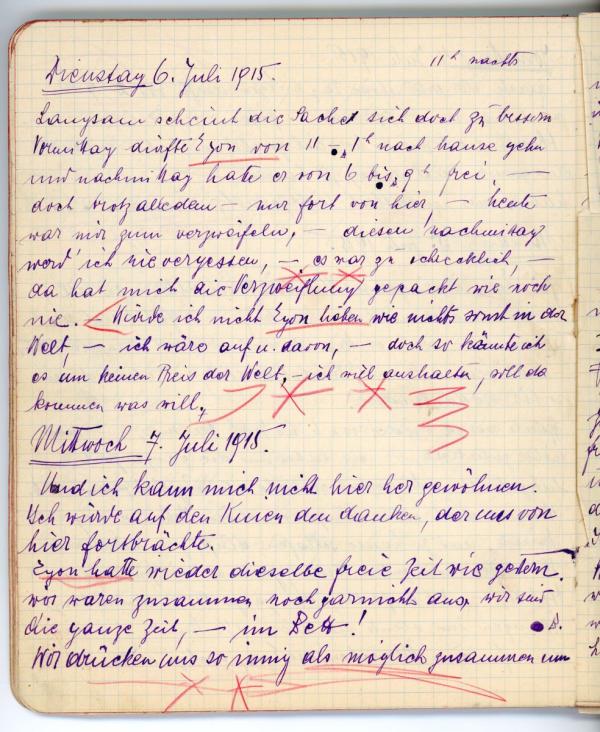 Dienstag 6. Juli 1915. 11h nachts
Langsam scheint die Sache sich doch zu bessern
Vormittag dürfte Egon von 11 - 1h nach hause gehn
und nachmittag hatte er von 6 bis 9h frei, —
doch trotzalledem — nur fort von hier, — heute
war mir zum verzweifeln, — diesen nachmittag
werd' ich nie vergessen, — es war zu schrecklich, —
da hat mich die Verzweiflung gepackt wie noch
nie. — Würde ich nicht Egon lieben wie nichts sonst in der
Welt, — ich wäre auf u. davon, — doch so könnte ich
es um keinen Preis der Welt, — ich will aushalten, soll da
kommen was will,
Mittwoch 7. Juli 1915.
Und ich kann mich nicht hier her gewöhnen.
Ich würde auf den Knien dem danken, der uns von
hier fortbrächte.
Egon hatte wieder dieselbe freie Zeit wie gestern.
wir waren zusammen noch garnicht aus, wir sind
die ganze Zeit, — im Bett!
Wir drücken uns so innig als möglich zusammen um